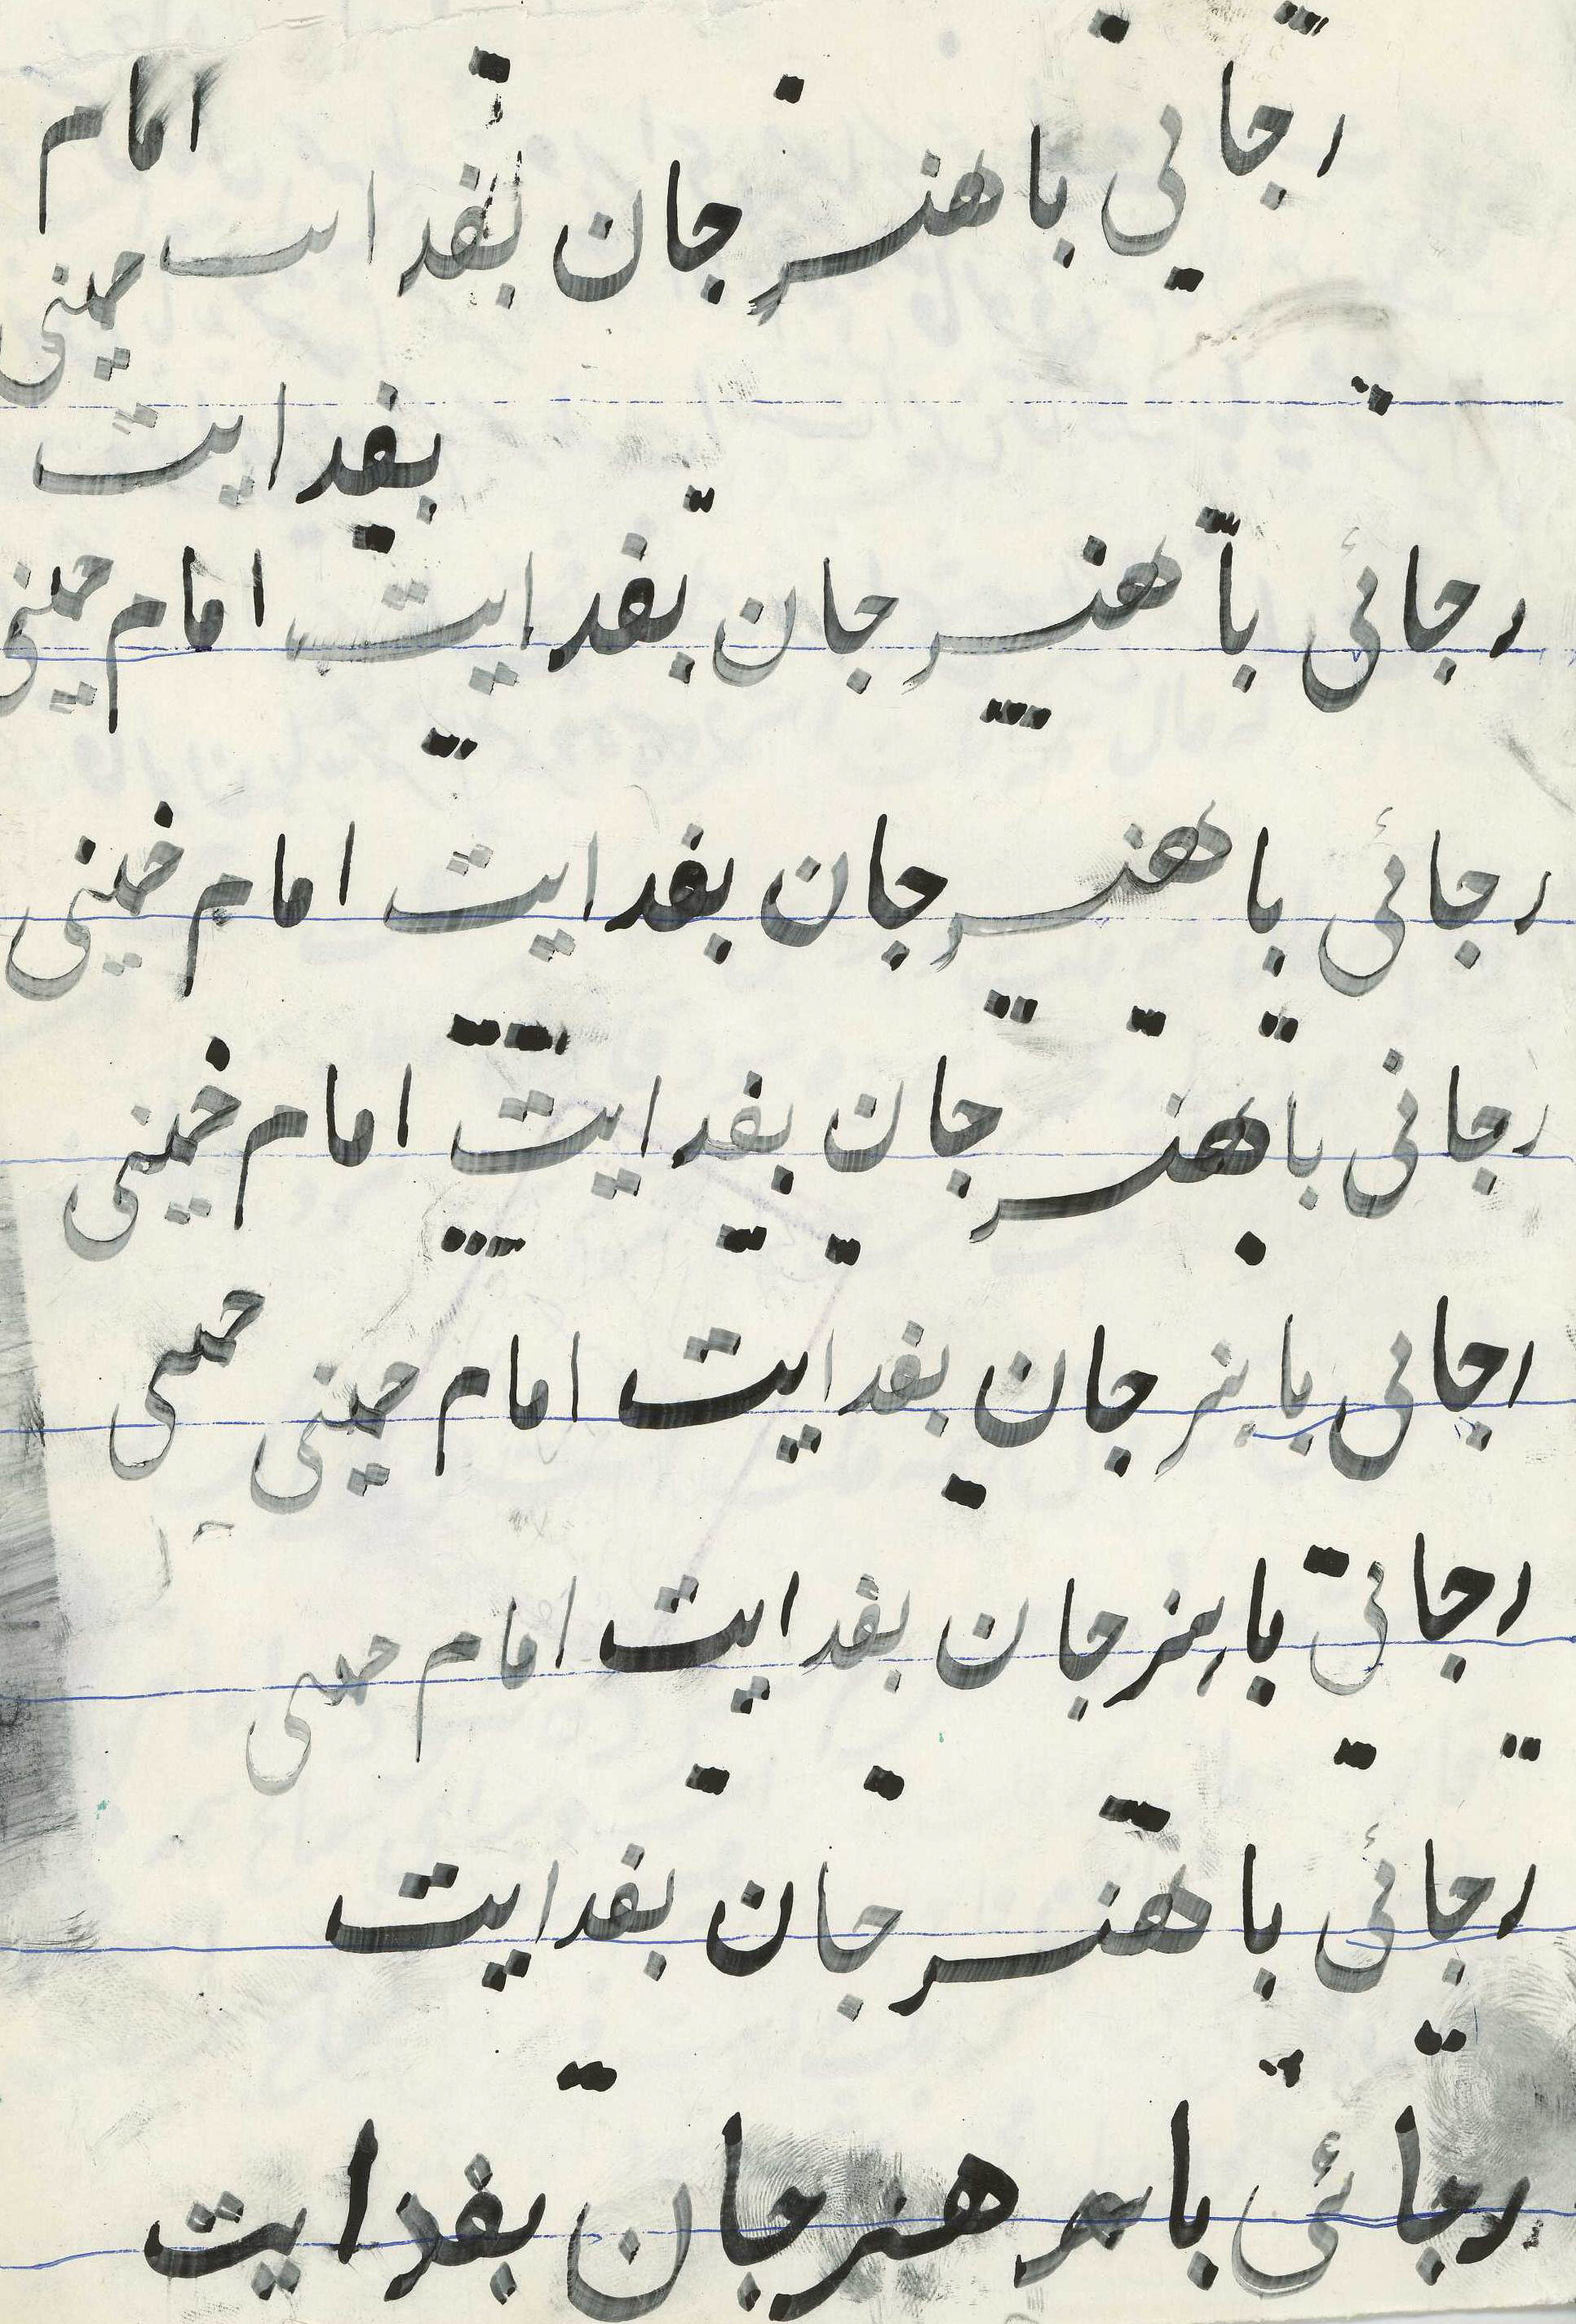 رجائی با هنر جان بفدایت امام
خمینی
بفدایت
رجائی با هنر جان بفدایت امام خمینی
رجائی با هنر جان بفدایت امام خمینی
رجائی با هنر جان بفدایت امام خمینی
خمینی
رجائی با هنر جان بفدایت امام خمینی
رجائی با هنر جان بفدایت امام خمینی
رجائی با هنر جان بفدایت
رجائی با هنر جان بفدایت